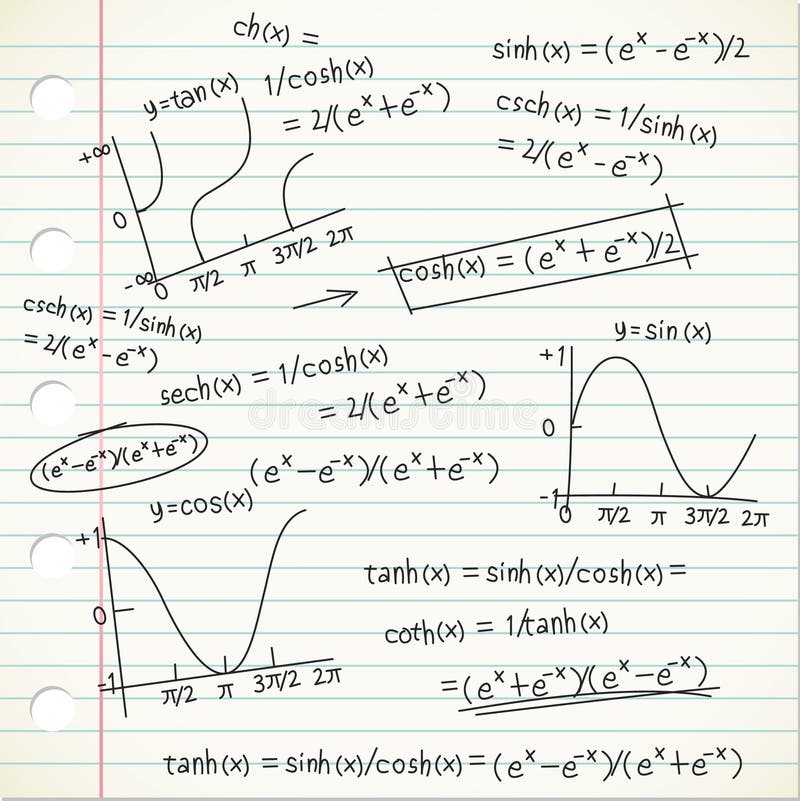 ch(x) =
1/cosh(x)
= 2/(eˣ+e⁻ˣ)
sinh(x) = (eˣ - e⁻ˣ)/2
csch(x) = 1/sinh(x)
= 2/(eˣ - e⁻ˣ)
y=tan(x)
+∞
0
-∞
0 π/2 π 3π/2 2π
cosh(x) = (eˣ + e⁻ˣ)/2
csch(x) = 1/sinh(x)
= 2/(eˣ - e⁻ˣ)
sech(x) = 1/cosh(x)
= 2/(eˣ+e⁻ˣ)
y=sin(x)
+1
0
-1
0 π/2 π 3π/2 2π
dreamstime
(eˣ-e⁻ˣ)/(eˣ+e⁻ˣ)
(eˣ-e⁻ˣ)/(eˣ+e⁻ˣ)
y=cos(x)
+1
0
-1
π/2 π 3π/2 2π
tanh(x) = sinh(x)/cosh(x) =
coth(x) = 1/tanh(x)
=(eˣ+e⁻ˣ)/(eˣ-e⁻ˣ)
tanh(x) = sinh(x)/cosh(x) = (eˣ-e⁻ˣ)/(eˣ+e⁻ˣ)